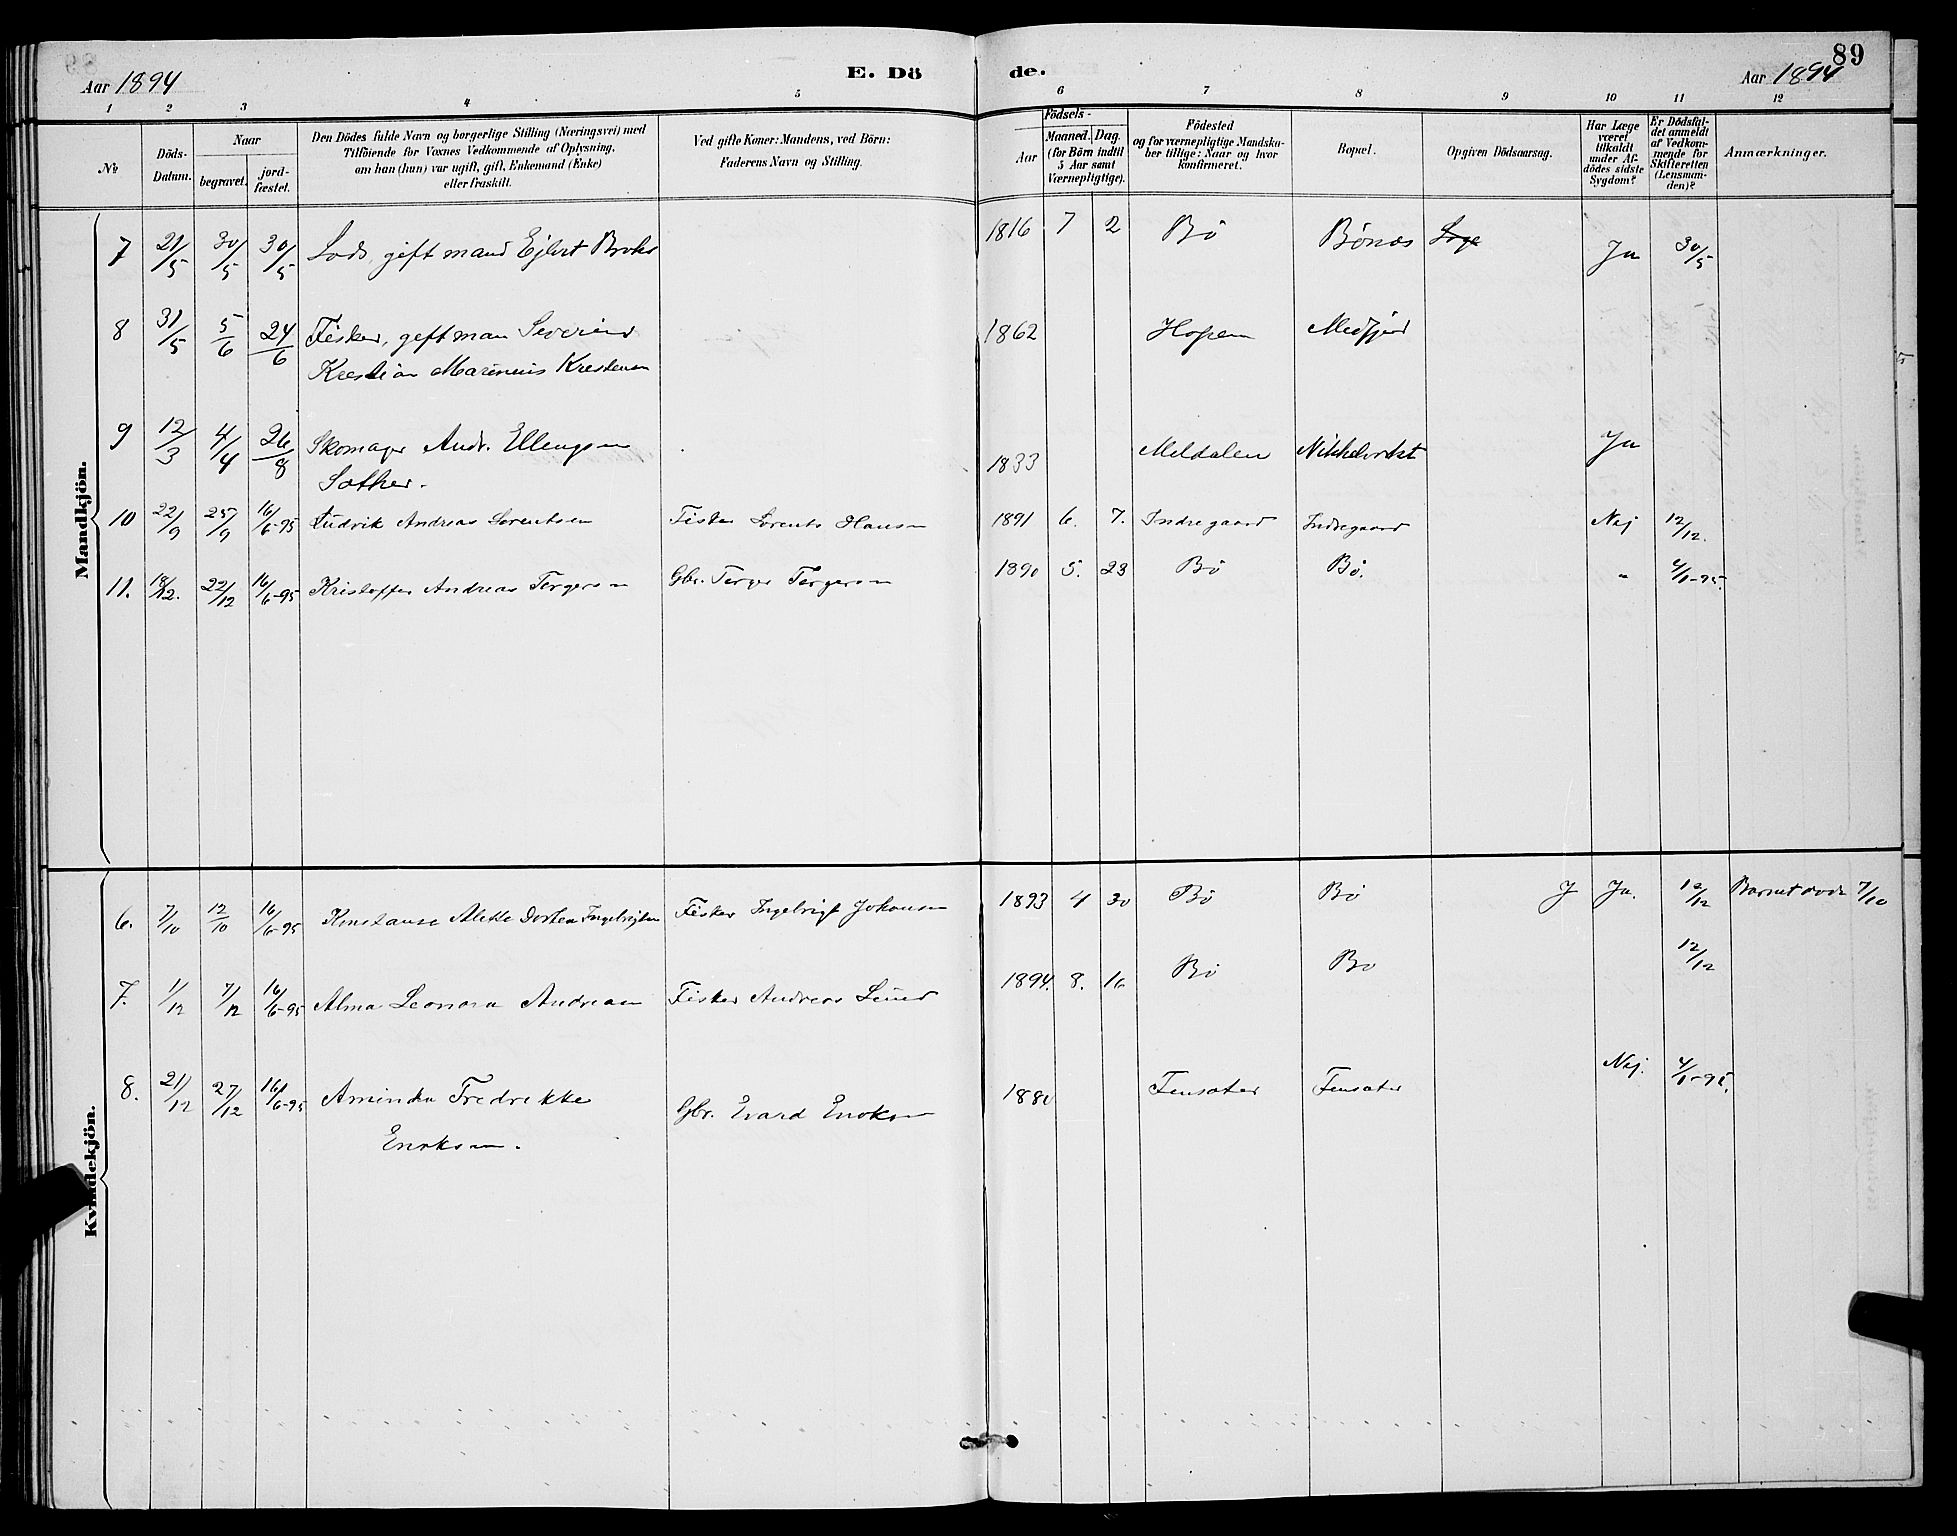 89
Aar 1894 E. Dö de. Aar 1894
1 2 3 4 5 6 7 8 9 10 11 12
No
Döds-
Datum.
Naar
begravet.
jord-
fæstet.
Den Dödes fulde Navn og borgerlige Stilling (Næringsvei) med
Tilföiende for Voxnes Vedkommende af Oplysning,
om han (hun) var ugift, gift, Enkemand (Enke)
eller fraskilt.
Ved gifte Koner: Mandens, ved Börn:
Faderens Navn og Stilling.
Födsels-
Aar
Maaned. Dag.
(for Börn indtil
5 Aar samt
Værnepligtige).
Födested
og for værnepligtige Mandska-
ber tillige: Naar og hvor
konfirmeret.
Bopæl.
Opgiven Dödsaarsag.
Har Læge
været
tilkaldt
under Af-
dödes sidste
Sygdom?
Er Dödsfal-
det anmeldt
af Vedkom-
mende for
Skifteretten
(Lensman-
den)?
Anmærkninger.
Mandkjön.
7 21/5 30/5 30/5 Lods, gift mand Ejlert 1816 7 2 Bö Bönes Ja 30/5
8 31/5 5/6 24/6 Fisker, gift man Severin 1862 Hopen Medfjord
Kristian Marinius Kristensen
9 12/3 4/4 26/8 Skomager Andr. Ellengsen 1833 Meldalen Ja
Sæther.
10 22/9 25/9 16/6-95 Ludvik Andreas Lorentsen Fisker Lorents Hansen 1891 6. 7. Indregaard Indregaard Nej 12/12.
11. 18/12. 22/12 16/6-95 Kristoffer Andreas Torgersen Gbr. Torger Torgersen 1890 5. 23 Bö Bö. " 4/1-95.
Kvindekjön.
6. 7/10 12/10 16/6-95 Konstanse Alette Dortea Ingebrigtsen Fisker Ingebrigt Johansen 1893 4 30 Bö Bö J Ja. 12/12 Barnet döde 7/10
7. 1/12 7/12 16/6-95 Alma Leonora Andreasen Fisker Andreas 1894. 8. 16 Bö Bö 12/12
8. 21/12 27/12 16/6-95 Aminda Fredrikke Gbr. Evard Enoksen 1880 Finsæter Finsæter Nej. 4/1-95.
Enoksen.